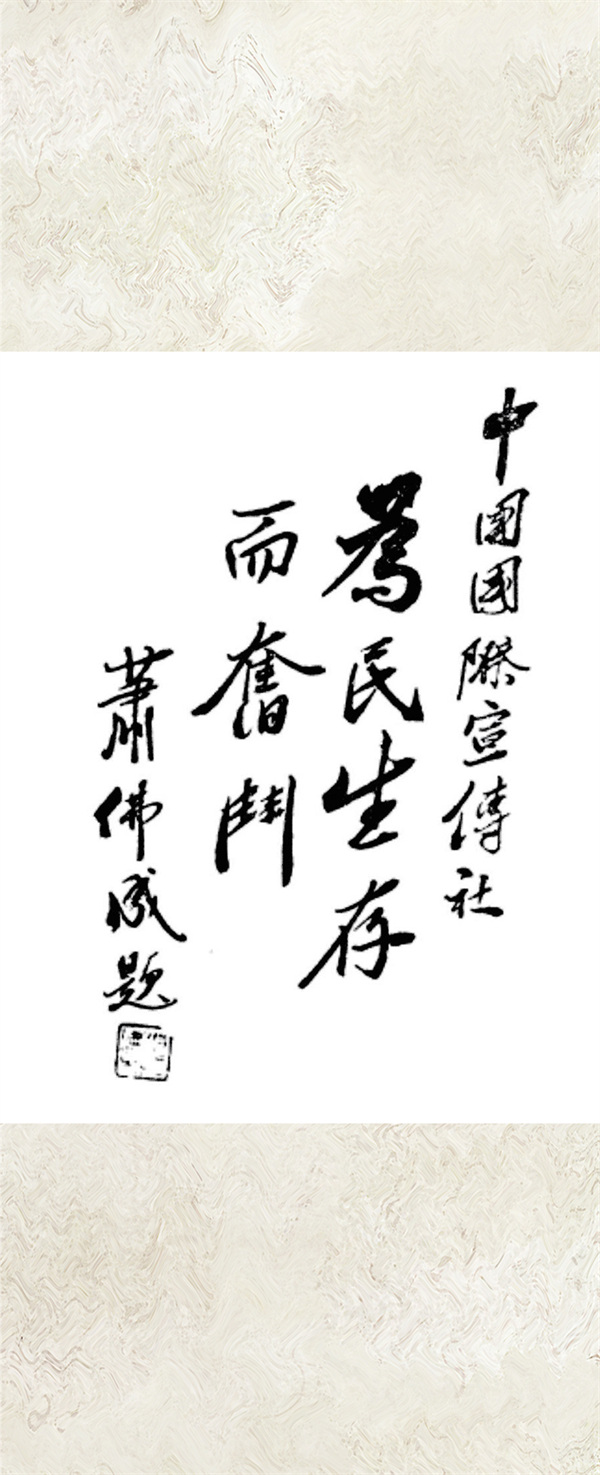 中國國際宣傳社
為民生存
而奮鬥
蕭佛成題